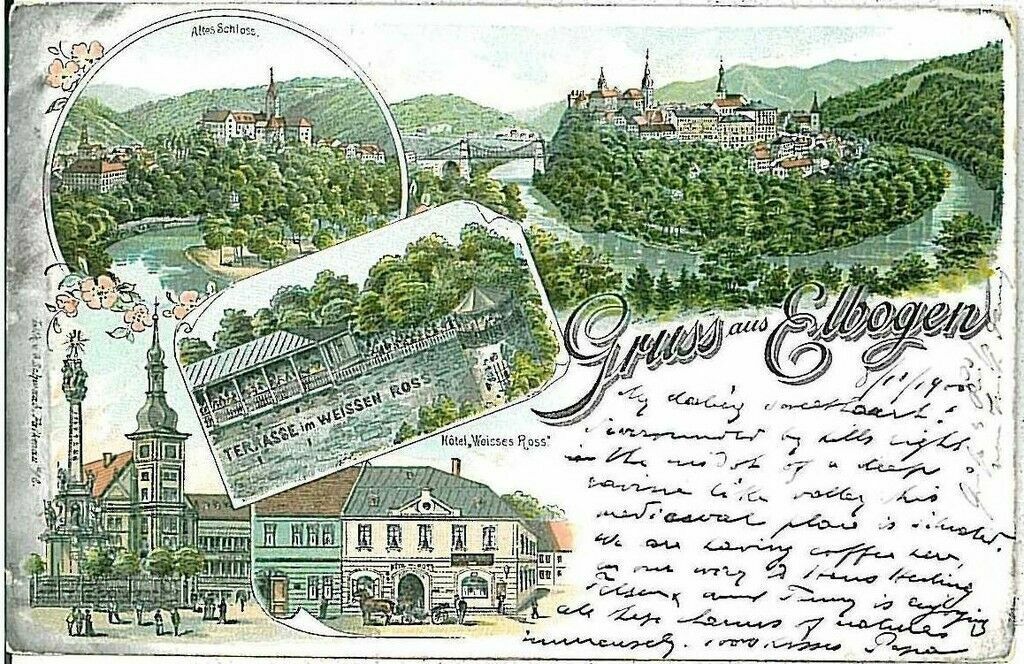 Altes Schloss.
Gruss aus Elbogen
TERRASSE im WEISSEN ROSS
Hôtel „Weisses Ross"
8/11/1900
My darling sweetheart!
Surrounded by hills right
in the midst of a deep
ravine like valley this
mediaeval place is situated.
We are having coffee here,
on our way to Hans Heiling
Felsen, and Jenny is enjoying
all these charms of nature
immensely. 1000 kisses Papa